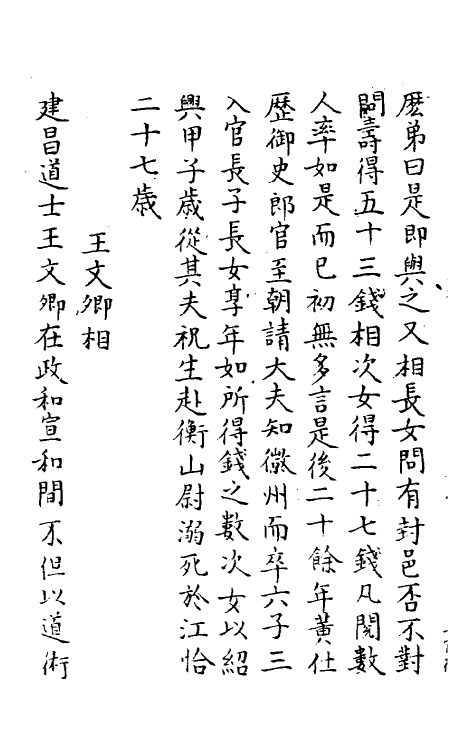 麽弟曰是即與之又相長女問有封邑否不對
問壽得五十三錢相次女得二十七錢凡閱數
人率如是而已初無多言是後二十餘年黄仕
歷御史郎官至朝請大夫知徽州而卒六子三
入官長子長女享年如所得錢之數次女以紹
興甲子歲從其夫祝生赴衡山尉溺死於江恰
二十七歲
王文卿相
建昌道士王文卿在政和宣和間不但以道術